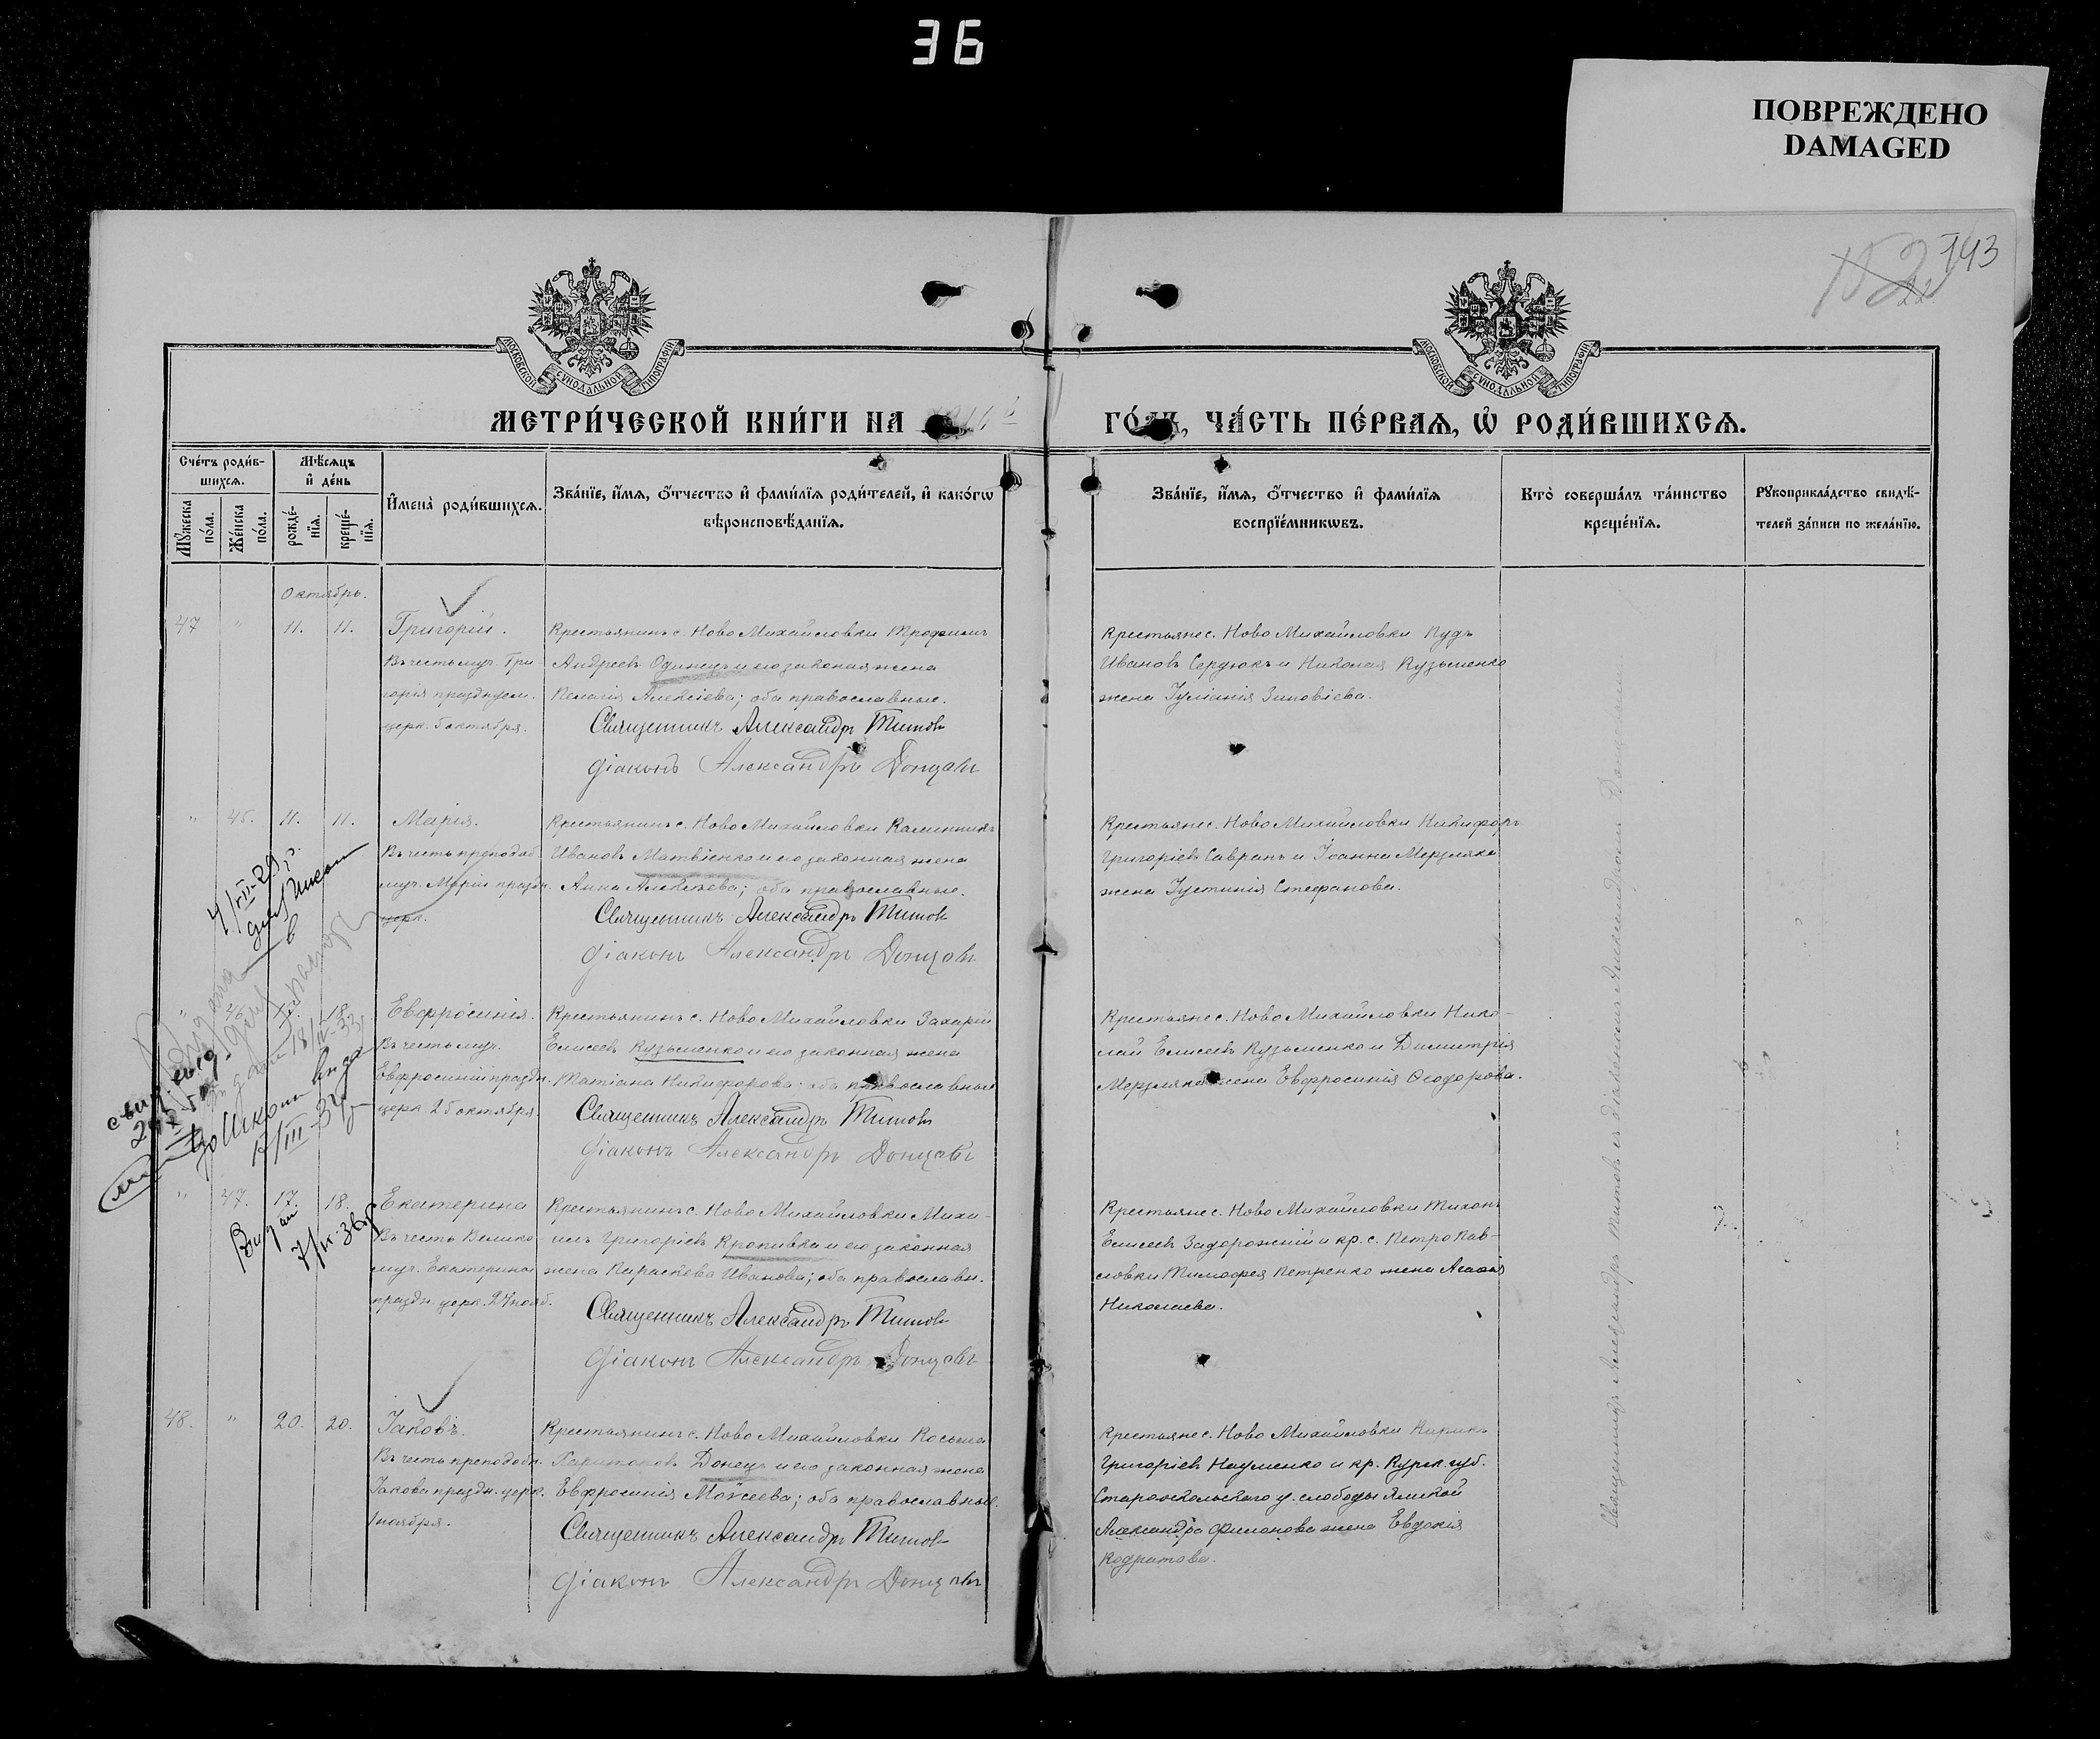 36
ПОВРЕЖДЕНО
DAMAGED
143
МОСКОВСКОЙ СѴНОДАЛЬНОЙ ТИПОГРАФІИ
МОСКОВСКОЙ СѴНОДАЛЬНОЙ ТИПОГРАФІИ
МЕТРИ́ЧЕСКОЙ КНИ́ГИ НА
ГО́ДЪ, ЧА́СТЬ ПЕ́РВАѦ, Ѽ РОДИ́ВШИХСѦ.
Сче́тъ роди́в-
шихсѧ.
Мꙋ́жеска по́ла.
Же́нска по́ла.
Мѣ́сѧцъ и҆ де́нь
рожде́-нїѧ.
креще́-нїѧ.
И҆мена̀ роди́вшихсѧ.
Зва́нїе, и҆́мѧ, ѻ҆́тчество и҆ фами́лїѧ роди́телей, и҆ како́гѡ
вѣроисповѣ́данїѧ.
Зва́нїе, и҆́мѧ, ѻ҆́тчество и҆ фами́лїѧ
воспрїе́мникѡвъ.
Кто̀ соверша́лъ та́инство
креще́нїѧ.
Рꙋкоприкла́дство свидѣ́-
телей за́писи по жела́нїю.
Октябрь.
47 " 11. 11. Григорій.
Въ честь муч. Гри-
горія празднуем.
церк. 5 октября.
Крестьянинъ с. Ново Михайловки Трофимъ
Андреевъ Одинецъ и его законая жена
Пелагія Алексіева; оба православные.
Священникъ Александръ Титовъ
Діаконъ Александръ Донцовъ
Крестьяне с. Ново Михайловки
Ивановъ Сердюкъ и Николая Кузьменко
жена Іуліанія Зиновіева.
" 45. 11. 11. Марія.
Въ честь преподоб.
муч. Маріи праздн.
церк.
Крестьянинъ с. Ново Михайловки Каленникъ
Ивановъ Матвіенко и его законная жена
Анна Алексѣева; оба православные.
Священникъ Александръ Титовъ
Діаконъ Александръ Донцовъ
Крестьяне с. Ново Михайловки Никифоръ
Григоріевъ Савранъ и Іоанна Мерзляка
жена Іустинія Стефанова.
" 46. 18. Евфросинія.
Въ честь муч.
Евфросиніи праздн.
церк. 25 октября.
Крестьянинъ с. Ново Михайловки Захарій
Елисеевъ Кузьменко и его законная жена
Татіана Никифорова; оба православные
Священникъ Александръ Титовъ
Діаконъ Александръ Донцовъ
Крестьяне с. Ново Михайловки Нико-
лай Елисеевъ Кузьменко и Димитрія
Мерзляка жена Евфросинія Ѳеодорова.
" 47. 17. 18. Екатерина
Въ честь Велико-
муч. Екатерины
праздн. церк. 24 нояб.
Крестьянинъ с. Ново Михайловки Миха-
илъ Григоріевъ Кропивка и его законная
жена Параскева Иванова; оба православн.
Священникъ Александръ Титовъ
Діаконъ Александръ Донцовъ
Крестьяне с. Ново Михайловки Тихонъ
Елисеевъ Задорожній и кр. с. Петропав-
ловки Тимофея Петренко жена Агафія
Николаева.
48. " 20. 20. Іаковъ.
Въ честь преподобн.
Іакова праздн. церк.
1 ноября.
Крестьянинъ с. Ново Михайловки Косьма
Харитоновъ Донецъ и его законная жена
Евфросинія Моѵсеева; оба православные.
Священникъ Александръ Титовъ
Діаконъ Александръ Донцовъ
Крестьяне с. Ново Михайловки Кирикъ
Григоріевъ Науменко и кр. Курск. губ.
Старооскольскаго у. слободы Ямской
Александра Филонова жена Евдокія
Кодратова.
Священникъ Александръ Титовъ съ діакономъ Александромъ Донцовымъ
4/VII-29 г.
в
18/IV-33
вида
17/III-34
Видан
7/IX-36 г